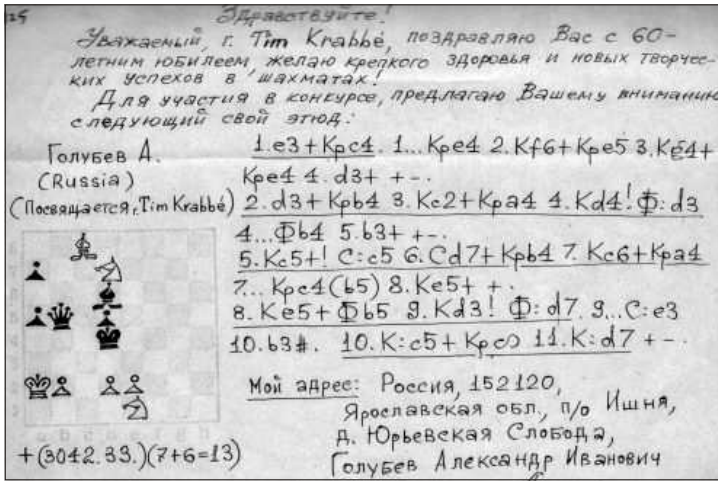 125
Здравствуйте!
Уважаемый, г. Tim Krabbé, поздравляю Вас с 60-
летним юбилеем, желаю крепкого здоровья и новых творчес-
ких успехов в шахматах!
Для участия в конкурсе, предлагаю Вашему вниманию
следующий свой этюд:
Голубев А.
(Russia)
(Посвящается, г. Tim Krabbé)
1.e3+Kpc4. 1...Kpe4 2.Kf6+Kpe5 3.Kg4+
Kpe4 4.d3+ +-.
2.d3+Kpb4 3.Kc2+Kpa4 4.Kd4! Ф:d3
4...Фb4 5.b3+ +-.
5.Kc5+! C:c5 6.Cd7+Kpb4 7.Kc6+Kpa4
7...Kpc4(b5) 8.Ke5+ +-.
8.Ke5+Фb5 9.Kd3! Ф:d7. 9...C:e3
10.b3#. 10.K:c5+Kp∞ 11.K:d7 +-.
+(3042.33.)(7+6=13)
Мой адрес: Россия, 152120,
Ярославская обл., п/о Ишня,
д. Юрьевская Слобода,
Голубев Александр Иванович